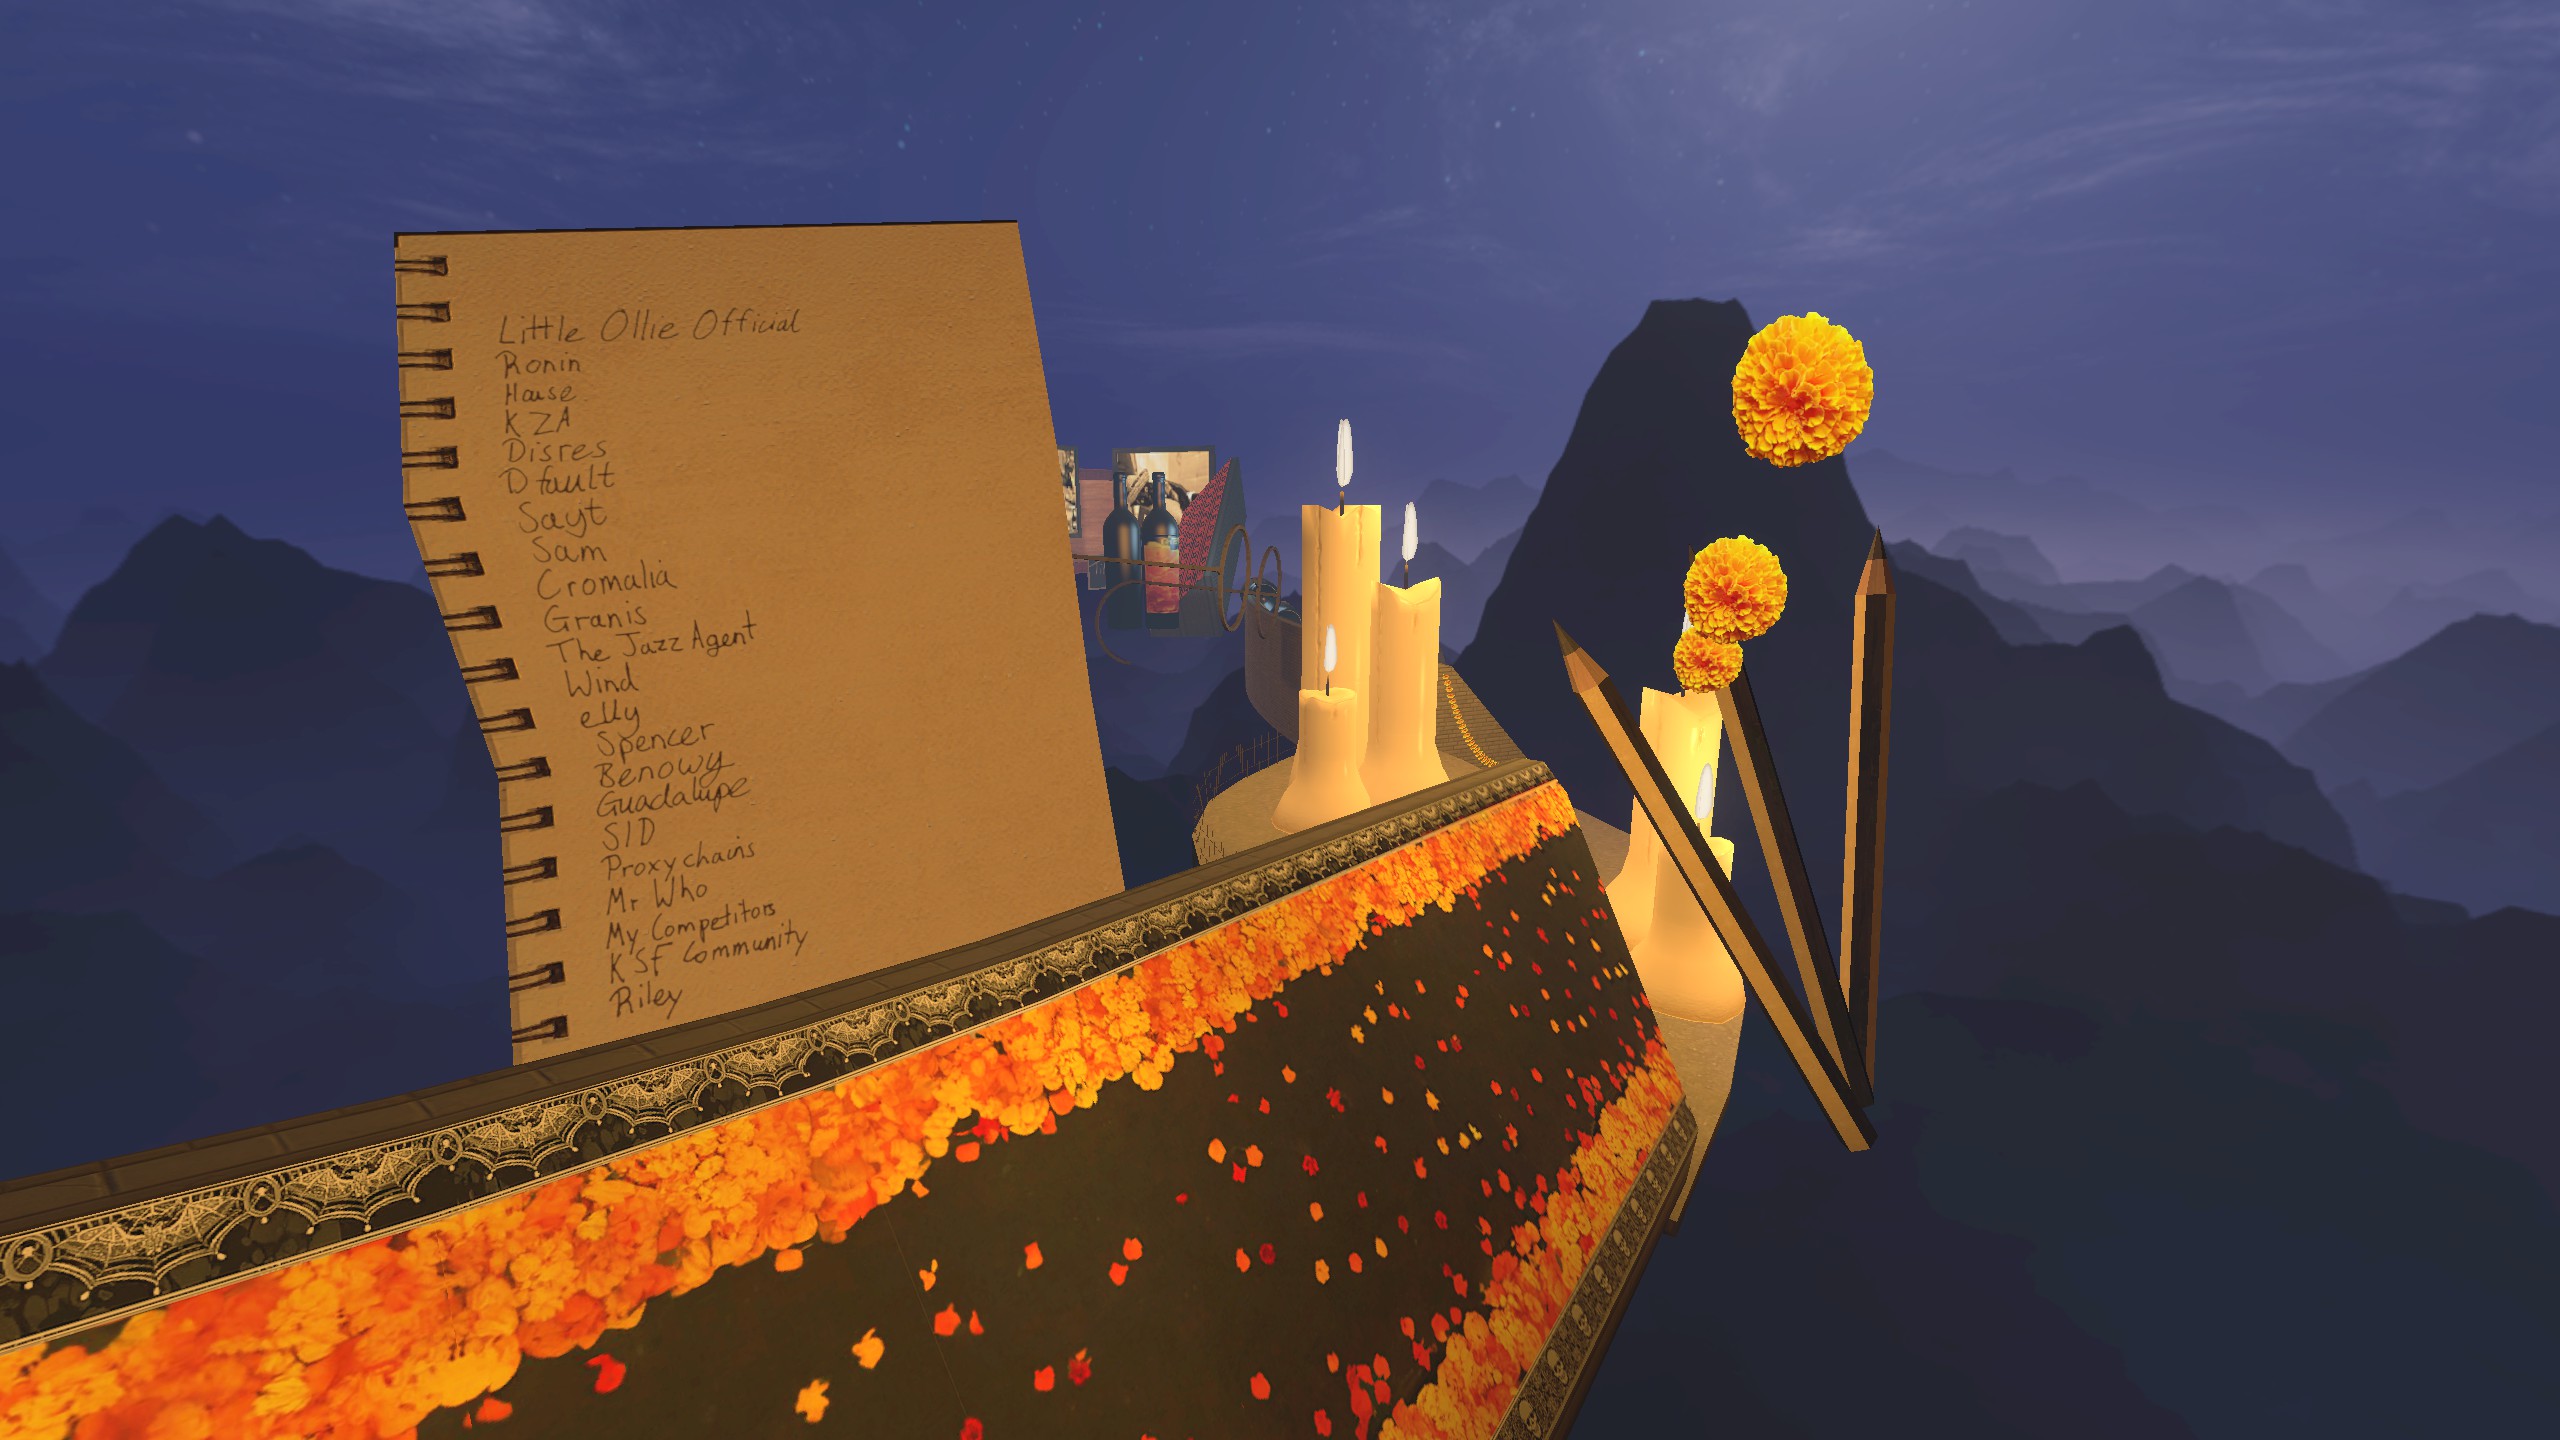 Little Ollie Official
Ronin
House
KZA
Disres
Dfault
Sayt
Sam
Cromalia
Granis
The Jazz Agent
Wind
elly
Spencer
Benowy
Guadalupe
SID
Proxychains
Mr Who
My Competitors
KSF Community
Riley